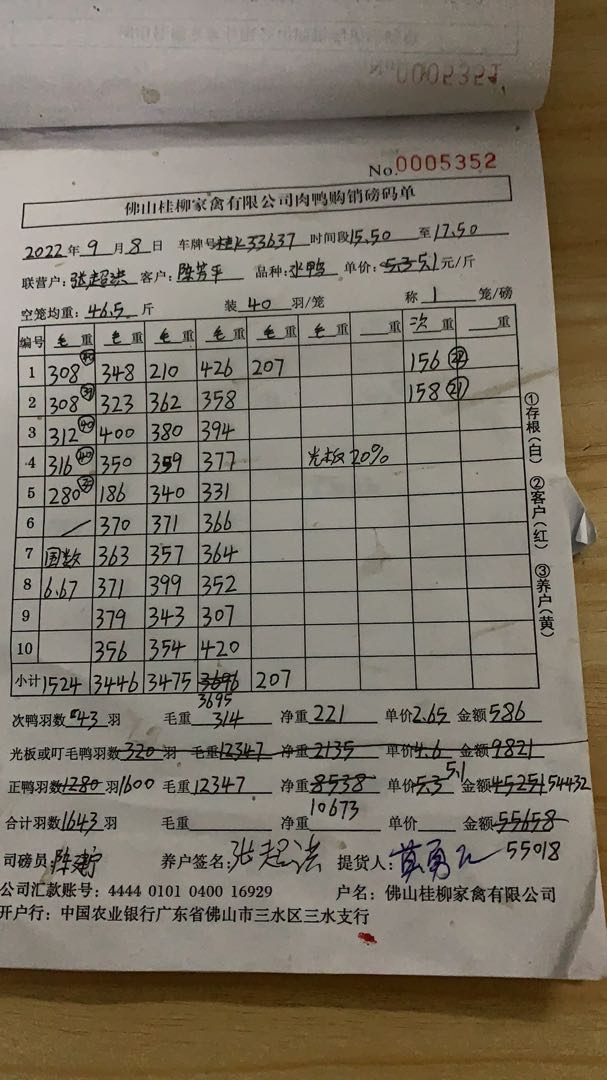 No.0005352
佛山桂柳家禽有限公司肉鸭购销磅码单
2022年 9 月 8 日 车牌号桂K33637 时间段15.50 至 17.50
联营户：张超洪 客户：陈芳平 品种：张鸭 单价：5.35 5.1 元/斤
空笼均重：46.5 斤 装 40 羽/笼 称 1 笼/磅
编号 毛重 毛重 毛重 毛重 毛重 毛重 重 次重 重
1 308 348 210 426 207 156 22
2 308 39 323 362 358 158 21
3 312 40 400 380 394
4 316 40 350 359 377 光板 20%
5 280 186 340 331
6 370 371 366
7 国数 363 357 364
8 6.67 371 399 352
9 379 343 307
10 356 354 420
小计 1524 3446 3475 3696 207
3695
次鸭羽数 43 羽 毛重 314 净重 221 单价 2.65 金额 586
光板或叮毛鸭羽数 320 羽 毛重 12347 净重 2135 单价 4.6 金额 9821
正鸭羽数 1280 羽 1600 毛重 12347 净重 8538 单价 5.3 5.1 金额 45251 54432
10673
合计羽数 1643 羽 毛重 净重 单价 金额 55658
55018
司磅员： 养户签名：张超洪 提货人：
公司汇款账号：4444 0101 0400 16929 户名：佛山桂柳家禽有限公司
开户行：中国农业银行广东省佛山市三水区三水支行
①存根（白） ②客户（红） ③养户（黄）